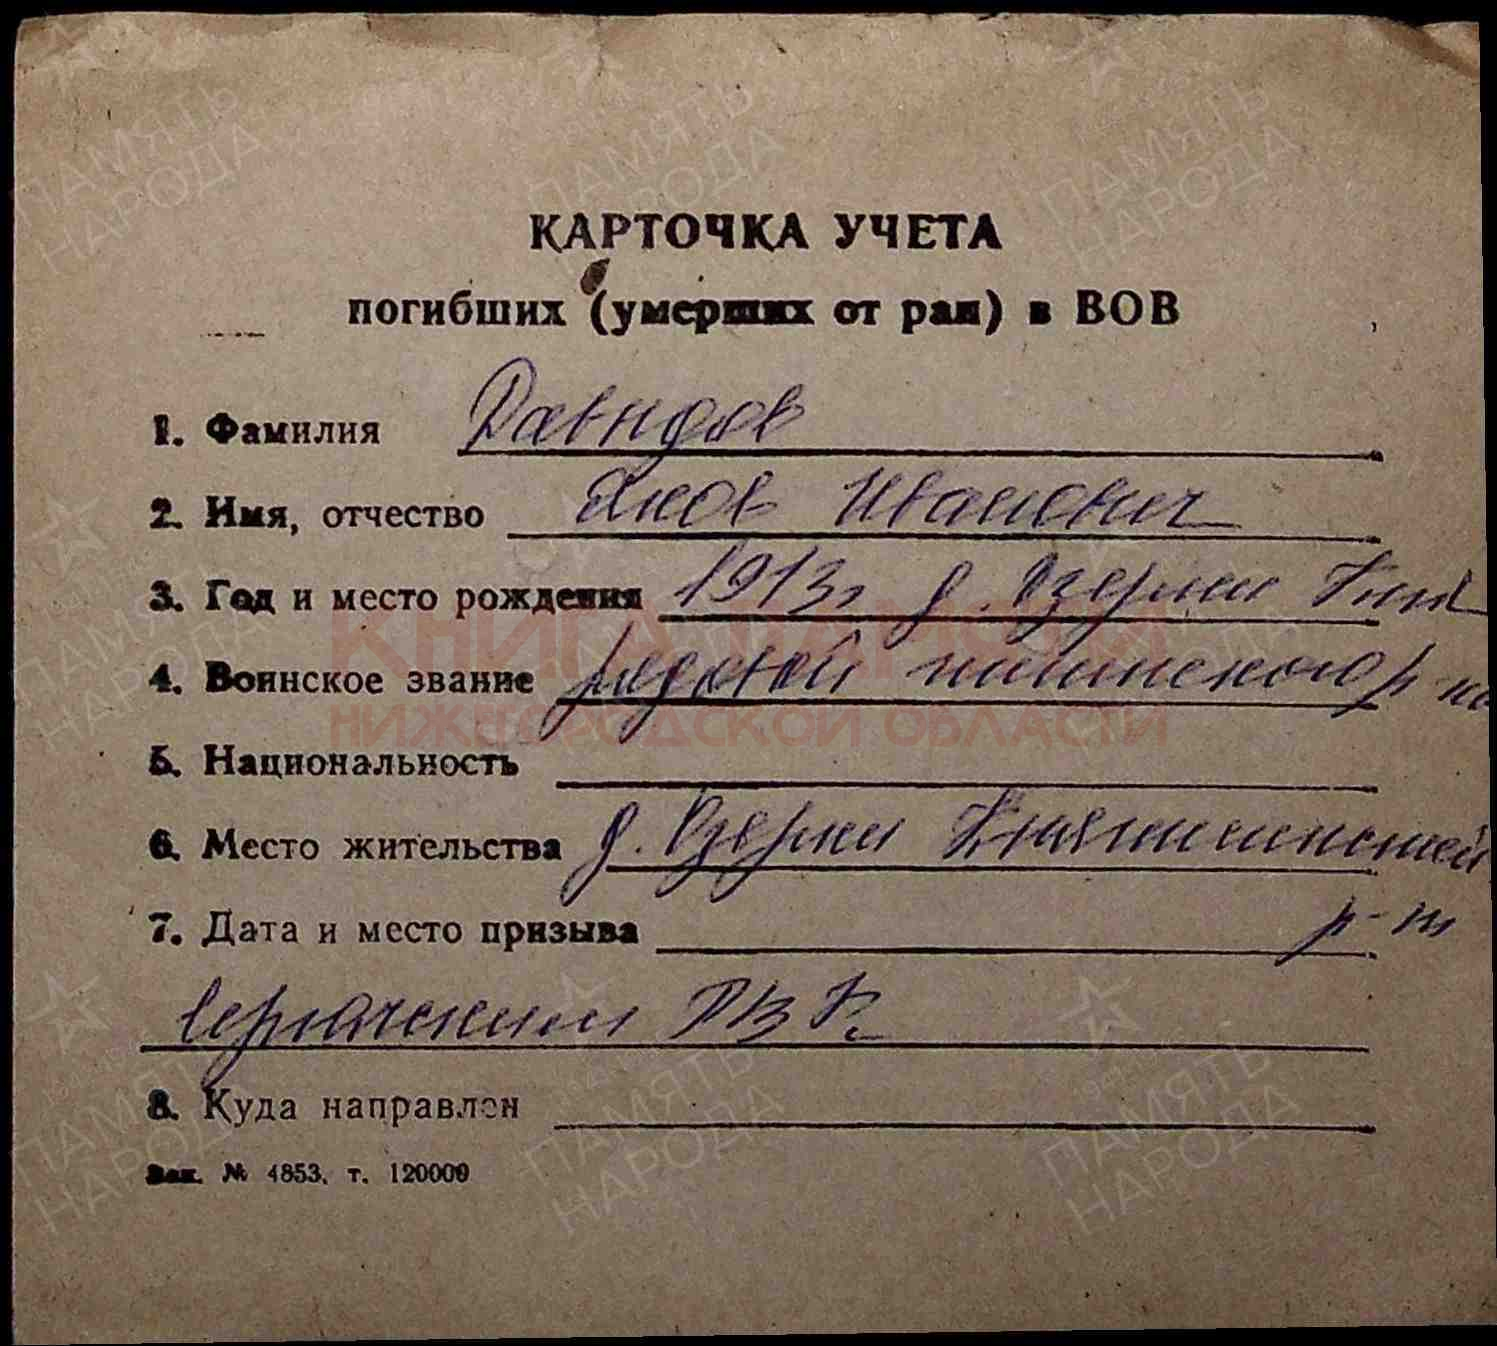 КАРТОЧКА УЧЕТА
погибших (умерших от ран) в ВОВ
1. Фамилия Давыдов
2. Имя, отчество Яков Иванович
3. Год и место рождения 1913г д. Озерки Княг
4. Воинское звание рядовой нинского р-на
5. Национальность
6. Место жительства д. Озерки Княгининский
7. Дата и место призыва р-н
Сергачским РВК
8. Куда направлен
Зак. № 4853, т. 120000
ПАМЯТЬ НАРОДА
КНИГА ПАМЯТИ
НИЖЕГОРОДСКОЙ ОБЛАСТИ